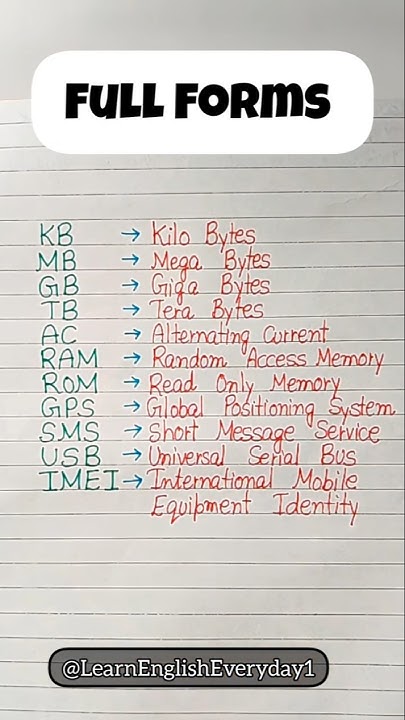 FULL FORMS
KB → Kilo Bytes
MB → Mega Bytes
GB → Giga Bytes
TB → Tera Bytes
AC → Alternating Current
RAM → Random Access Memory
ROM → Read Only Memory
GPS → Global Positioning System
SMS → Short Message Service
USB → Universal Serial Bus
IMEI → International Mobile
Equipment Identity
@LearnEnglishEveryday1